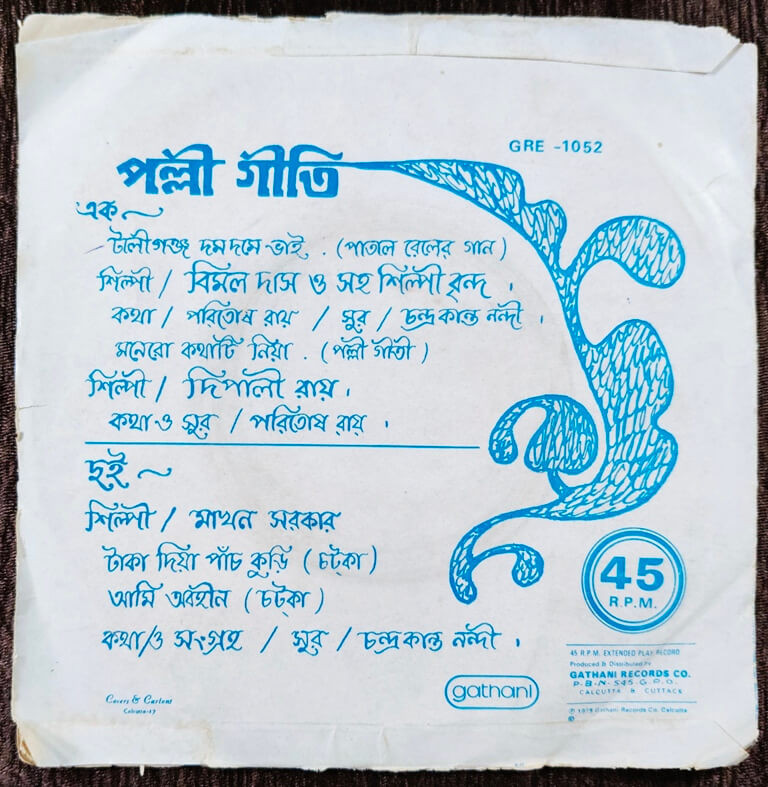 GRE -1052
পল্লী গীতি
এক ~
টালীগঞ্জ দমদমে ভাই . (পাতাল রেলের গান)
শিল্পী / বিমল দাস ও সহ শিল্পী বৃন্দ .
কথা / পরিতোষ রায় / সুর / চন্দ্রকান্ত নন্দী .
মনেরো কথাটি নিয়া . (পল্লী গীতী)
শিল্পী / দিপালী রায় .
কথা ও সুর / পরিতোষ রায় .
দুই ~
শিল্পী / মাখন সরকার
টাকা দিয়া পাঁচ কুড়ি (চট্কা)
আমি অবহীন (চট্কা)
কথা/ও সংগ্রহ / সুর / চন্দ্রকান্ত নন্দী .
45
R.P.M.
45 R.P.M. EXTENDED PLAY RECORD
Produced & Distributed by
GATHANI RECORDS CO.
P-B-N- 545-G.P.O.
CALCUTTA & CUTTACK
℗ Gathani Records Co. Calcutta
©
gathani
Covers & Cartons
Calcutta-17